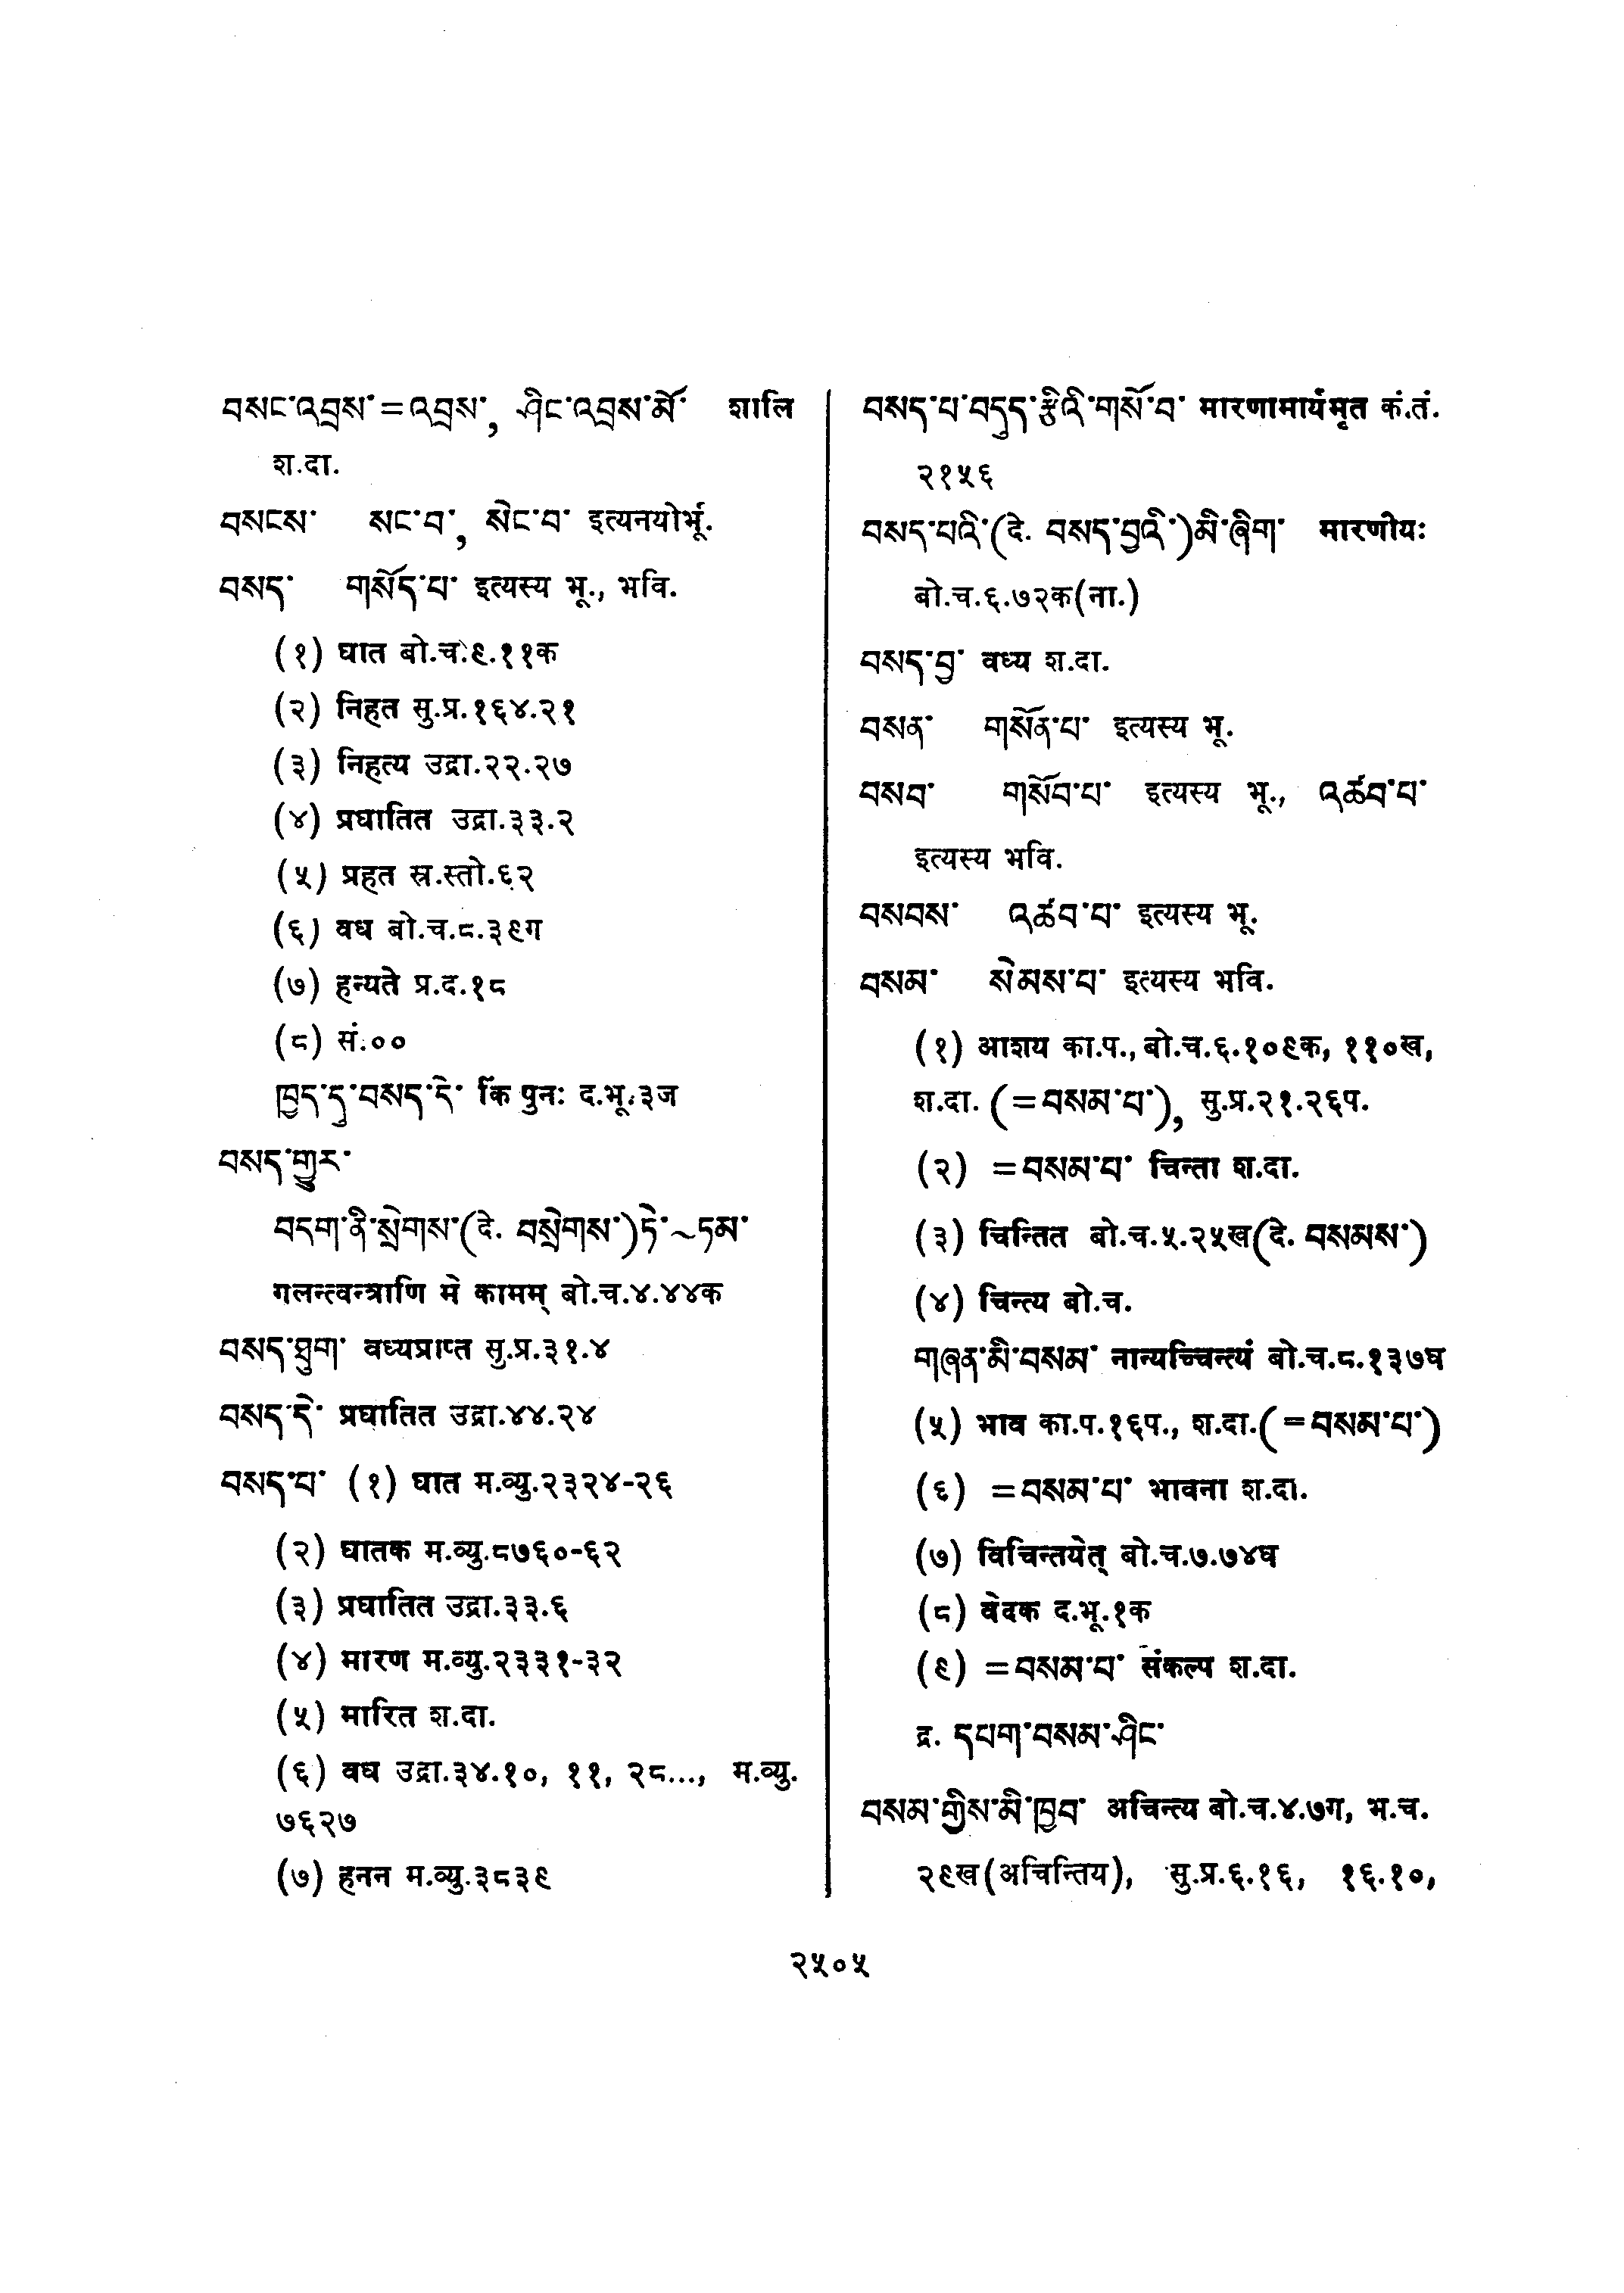 བསང་འབྲས་=འབྲས་, ཤིང་འབྲས་མོ་ शालि
श.दा.
བསངས་ སང་བ་, སེང་བ་ इत्यनयोर्भू.
བསད་ གསོད་པ་ इत्यस्य भू., भवि.
(१) घात बो.च.९.११क
(२) निहत सु.प्र.१६४.२१
(३) निहत्य उद्रा.२२.२७
(४) प्रघातित उद्रा.३३.२
(५) प्रहत स्र.स्तो.६२
(६) वध बो.च.८.३९ग
(७) हन्यते प्र.द.१८
(८) सं.००
ཁྱད་དུ་བསད་དེ་ किं पुनः द.भू.३ज
བསད་གྱུར་
བདག་ནི་སྲེགས་(दे. བསྲེགས་)ཏེ་~ཏམ་
गलन्त्वन्त्राणि मे कामम् बो.च.४.४४क
བསད་ཐུག་ वध्यप्राप्त सु.प्र.३१.४
བསད་དེ་ प्रघातित उद्रा.४४.२४
བསད་པ་ (१) घात म.व्यु.२३२४-२६
(२) घातक म.व्यु.८७६०-६२
(३) प्रघातित उद्रा.३३.६
(४) मारण म.व्यु.२३३१-३२
(५) मारित श.दा.
(६) वध उद्रा.३४.१०, ११, २८..., म.व्यु.
७६२७
(७) हनन म.व्यु.३८३९
བསད་པ་བདུད་རྩིའི་གསོ་བ་ मारणामार्यमृत कं.तं.
२१५६
བསད་པའི་(दे. བསད་བྱའི་)མི་ཞིག་ मारणीयः
बो.च.६.७२क(ना.)
བསད་བྱ་ वध्य श.दा.
བསན་ གསོན་པ་ इत्यस्य भू.
བསབ་ གསོབ་པ་ इत्यस्य भू., འཚབ་པ་
इत्यस्य भवि.
བསབས་ འཚབ་པ་ इत्यस्य भू.
བསམ་ སེམས་པ་ इत्यस्य भवि.
(१) आशय का.प., बो.च.६.१०९क, ११०ख,
श.दा. (=བསམ་པ་), सु.प्र.२१.२६प.
(२) =བསམ་པ་ चिन्ता श.दा.
(३) चिन्तित बो.च.५.२५ख(दे. བསམས་)
(४) चिन्त्य बो.च.
གཞན་མི་བསམ་ नान्यच्चिन्त्यं बो.च.८.१३७घ
(५) भाव का.प.१६प., श.दा.(=བསམ་པ་)
(६) =བསམ་པ་ भावना श.दा.
(७) विचिन्तयेत् बो.च.७.७४घ
(८) वेदक द.भू.१क
(९) =བསམ་པ་ संकल्प श.दा.
द्र. དཔག་བསམ་ཤིང་
བསམ་གྱིས་མི་ཁྱབ་ अचिन्त्य बो.च.४.७ग, भ.च.
२९ख(अचिन्तिय), सु.प्र.६.१६, १६.१०,
२५०५